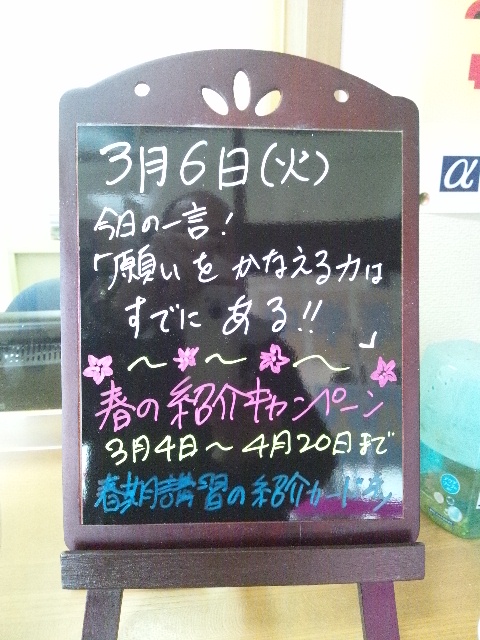 3月6日(火)
今日の一言!
「願いを かなえる力は
すでに ある!!」
〜 〜 〜
春の紹介キャンペーン
3月4日〜4月20日まで
春期講習の紹介カード
α